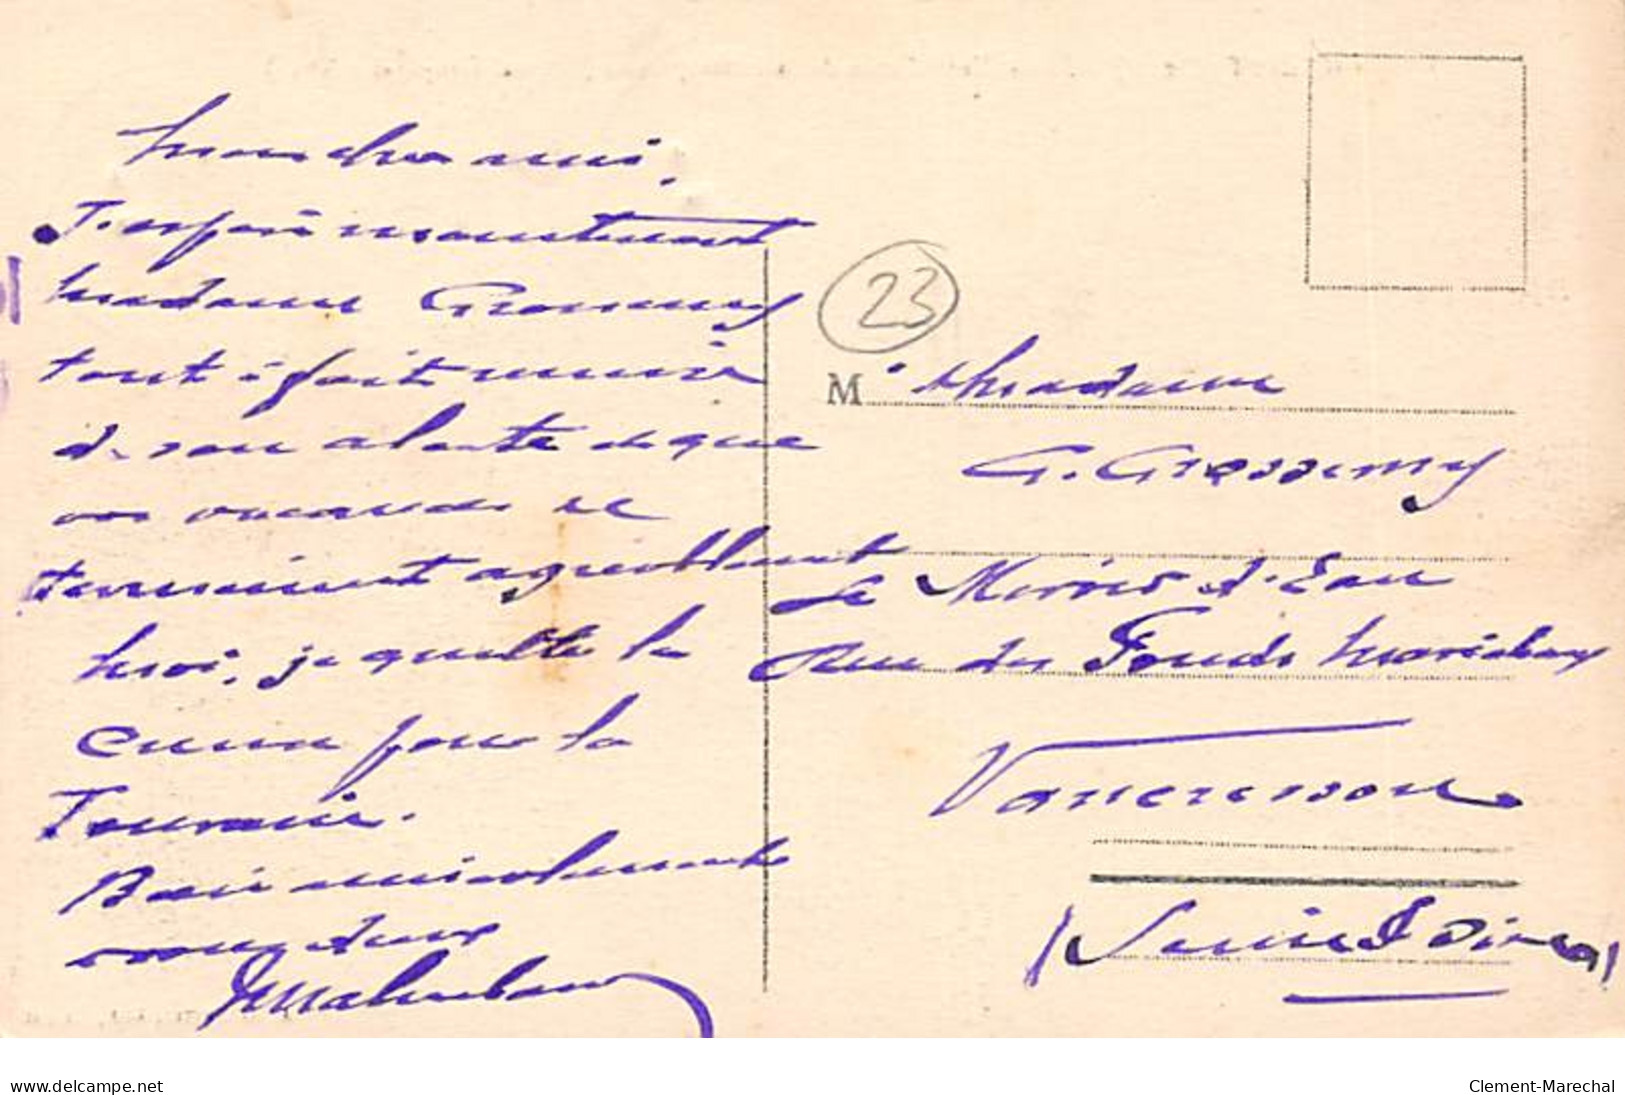 Mon cher ami,
J'espère maintenant
Madame Grossemy
tout à fait remise
de son alerte et que
vos vacances se
terminent agréablement
Moi, je quitte la
Creuse pour la
Touraine.
Bien amicalement à
vous deux
23
M Madame
G. Grossemy
Le Miroir d'Eau
Rue des Fonds Maréchaux
Vaucresson
(Seine & Oise)
www.delcampe.net
Clement-Marechal